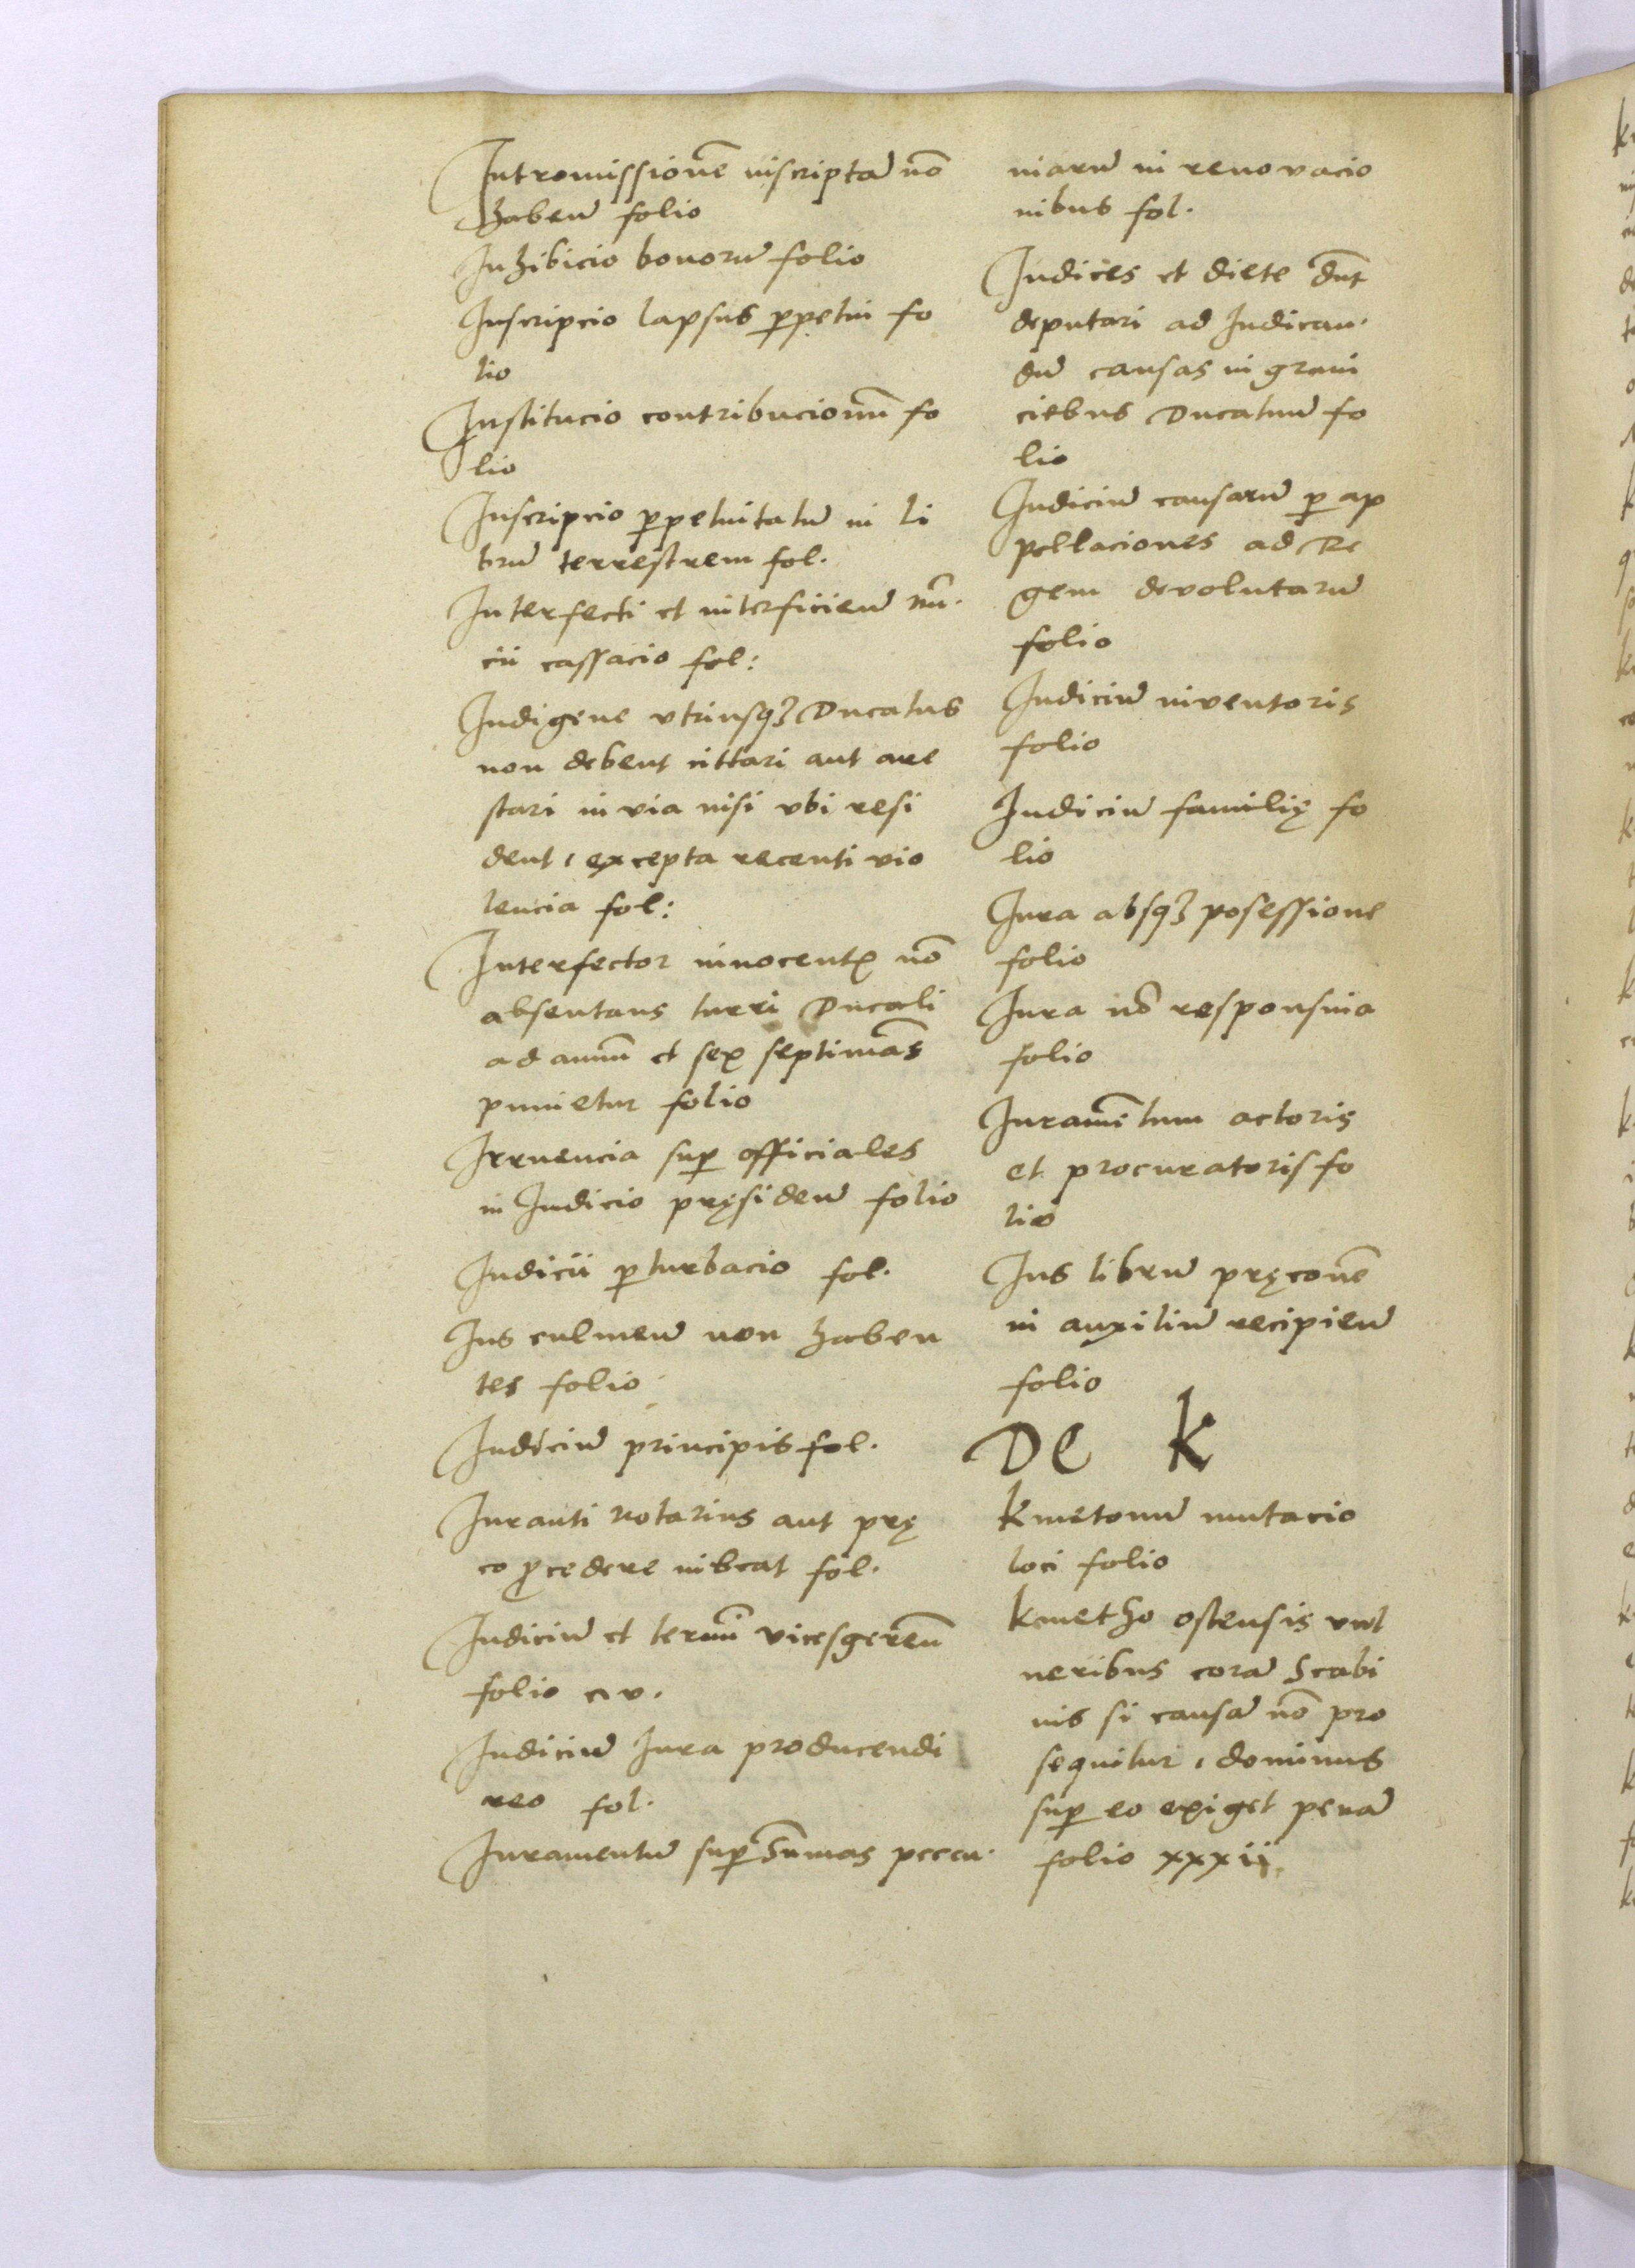 Intromissionē inscriptā nō
habeñ folio
Inhibicio bonorū folio
Inscripcio lapsus ꝑpetui fo
lio
Institucio contribucionū fo
lio
Inscripcio ꝑpetuitatū in li
brū terrestrem fol.
Interfecti et interficieñ
cii cassacio fol:
Indigene vtriusqꝫ Ducatus
non debent cittari aut are
stari in via nisi vbi resi
dent, excepta recenti vio
lencia fol:
Interfector innocentꝭ nō
absentans turri Ducali
ad annū et sex septimās
punietur folio
Irruencia suꝑ officiales
in Iudicio pręsideñ folio
Iudicii ꝑturbacio fol.
Ius culmeñ non haben
tes folio
Iudiciū principis fol.
Iuranti notarius aut prę
co ꝓcedere iubeat fol.
Iudiciū et termī vicesgereñ
folio
Iudiciū Iura producendi
reo fol.
Iuramentū suꝑ Summas peccu.
niarū in renovacio
nibus fol.
Iudices et diete dn̄t
deputari ad Iudican.
dū causas in graui
cietbus Ducatuū fo
lio
Iudiciū causarū ꝑ ap
pellaciones ad Re
gem devolutarū
folio
Iudiciū inventoris
folio
Iudiciū familię fo
lio
Iura absqꝫ posessione
folio
Iura nō responsiua
folio
Iuramētum actoris
et procuratoris fo
lio
Ius librū pręconē
in auxiliū recipieñ
folio
De K
Kmetonū mutacio
loci folio
Kmetho ostensis vul
neribus corā Scabi
nis si causā nō pro
sequitur, dominus
suꝑ eo exiget penā
folio xxxii